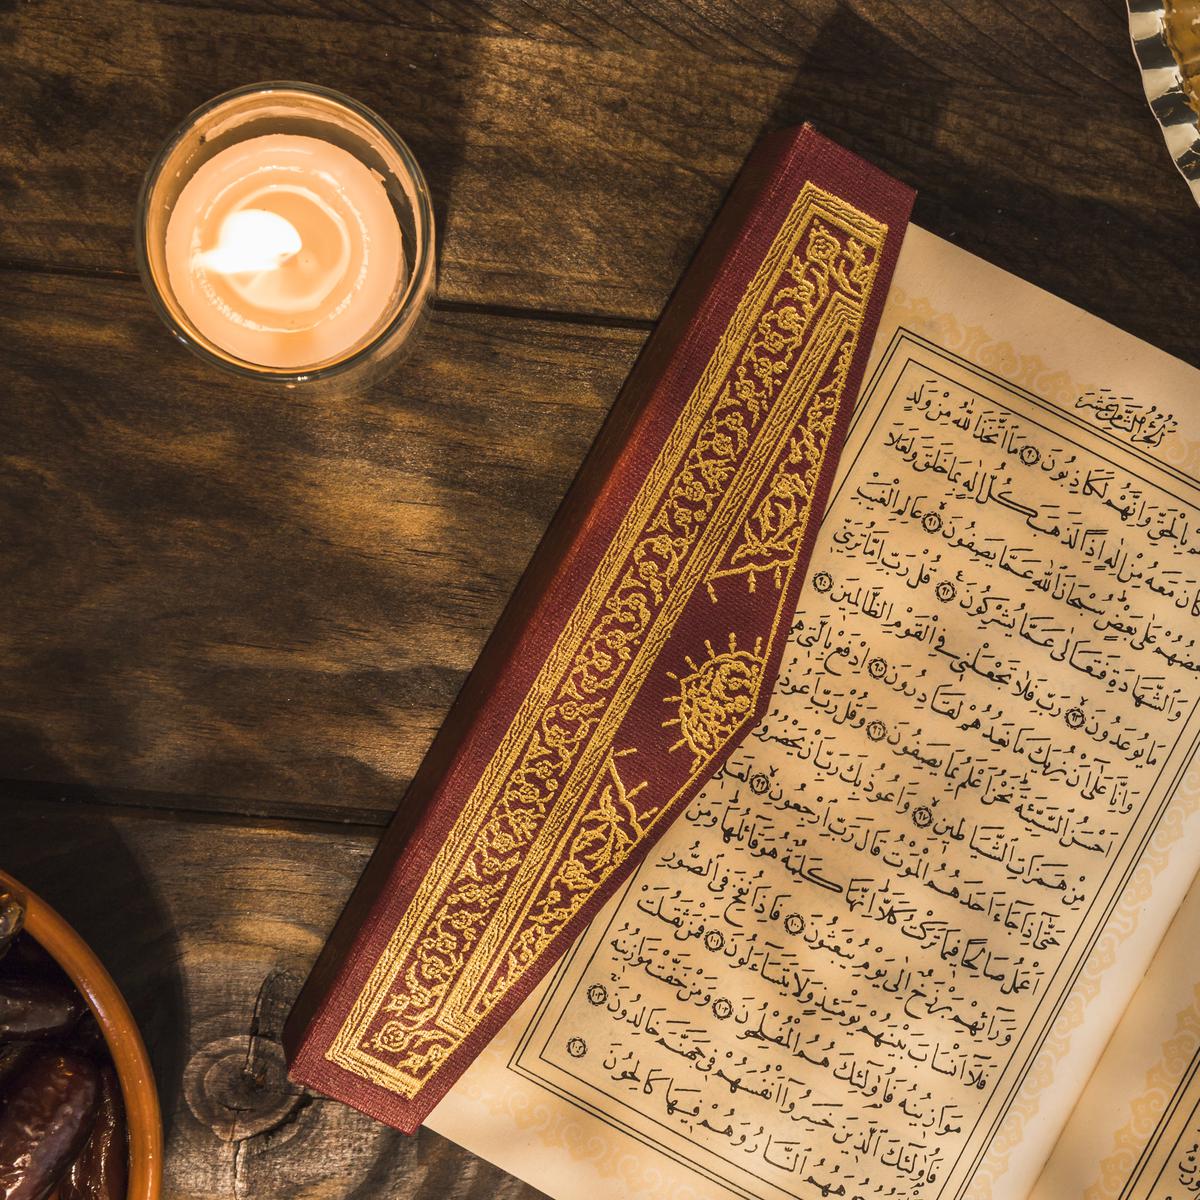 اَلْجُزْءُ الثَّامِنَ عَشَرَ
بِالْحَقِّ وَاِنَّهُمْ لَكَاذِبُونَ ٩٠ مَا اتَّخَذَ اللّٰهُ مِنْ وَلَدٍ
كَانَ مَعَهُ مِنْ اِلٰهٍ اِذًا لَذَهَبَ كُلُّ اِلٰهٍ بِمَا خَلَقَ وَلَعَلَا
بَعْضُهُمْ عَلٰى بَعْضٍ سُبْحَانَ اللّٰهِ عَمَّا يَصِفُونَ ٩١ عَالِمِ الْغَيْبِ
وَالشَّهَادَةِ فَتَعَالٰى عَمَّا يُشْرِكُونَ ٩٢ قُلْ رَبِّ اِمَّا تُرِيَنِّي
مَا يُوعَدُونَ ٩٣ رَبِّ فَلَا تَجْعَلْنِي فِي الْقَوْمِ الظَّالِمِينَ ٩٤
وَاِنَّا عَلٰى اَنْ نُرِيَكَ مَا نَعِدُهُمْ لَقَادِرُونَ ٩٥ اِدْفَعْ بِالَّتِي هِيَ
اَحْسَنُ السَّيِّئَةَ نَحْنُ اَعْلَمُ بِمَا يَصِفُونَ ٩٦ وَقُلْ رَبِّ اَعُوذُ
مِنْ هَمَزَاتِ الشَّيَاطِينِ ٩٧ وَاَعُوذُ بِكَ رَبِّ اَنْ يَحْضُرُونِ
حَتّٰى اِذَا جَاءَ اَحَدَهُمُ الْمَوْتُ قَالَ رَبِّ ارْجِعُونِ ٩٩ لَعَلِّي
اَعْمَلُ صَالِحًا فِيمَا تَرَكْتُ كَلَّا اِنَّهَا كَلِمَةٌ هُوَ قَائِلُهَا وَمِنْ
وَرَائِهِمْ بَرْزَخٌ اِلٰى يَوْمِ يُبْعَثُونَ ١٠٠ فَاِذَا نُفِخَ فِي الصُّورِ
فَلَا اَنْسَابَ بَيْنَهُمْ يَوْمَئِذٍ وَلَا يَتَسَاءَلُونَ ١٠١ فَمَنْ ثَقُلَتْ
مَوَازِينُهُ فَاُولٰئِكَ هُمُ الْمُفْلِحُونَ ١٠٢ وَمَنْ خَفَّتْ مَوَازِينُهُ
فَاُولٰئِكَ الَّذِينَ خَسِرُوا اَنْفُسَهُمْ فِي جَهَنَّمَ خَالِدُونَ ١٠٣
النَّارُ وَهُمْ فِيهَا كَالِحُونَ ١٠٤